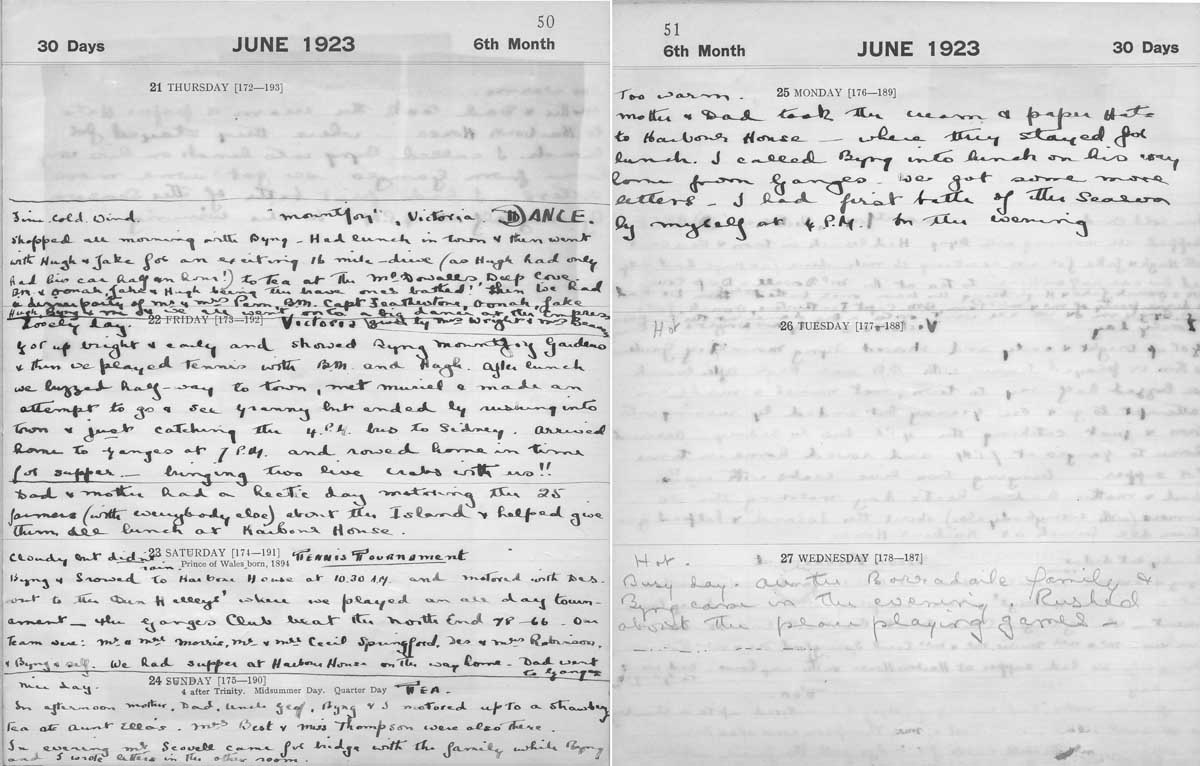 50
30 Days JUNE 1923 6th Month
21 THURSDAY [172—193]
Fine. Cold wind. "Mountjoy", Victoria. DANCE.
Shopped all morning with Byng - Had lunch in town & then went
with Hugh & Jake for an exciting 16 mile - drive (as Hugh had only
Had his car half an hour!) to tea at the McDowalls, Deep Cove.
BM & Oonah, Jake & Hugh being the brave ones bathed! Then we had
a dinner party of Mr & Mrs Pem, B.M. Capt Featherstone, Oonah, Jake
Hugh, Byng & me & we all went on to a big dance at the Empress
Lovely day. 22 FRIDAY [173—192] Victoria given by Mrs Wright & Mrs
Got up bright & early and showed Byng Mountjoy Gardens
& then we played tennis with B.M. and Hugh. After lunch
we buzzed half-way to town, met Muriel & made an
attempt to go & see Granny but ended by rushing into
town & just catching the 4 P.M. bus to Sidney. Arrived
home to Ganges at 7 P.M. and rowed home in time
for supper — bringing two live crabs with us!!
Dad & Mother had a hectic day motoring the 25
farmers (with everybody else) about the Island & helped give
them all lunch at Harbour House.
Cloudy but didn't rain. 23 SATURDAY [174—191] TENNIS TOURNAMENT
Prince of Wales born, 1894
Byng & I rowed to Harbour House at 10.30 AM. and motored with Des.
out to the where we played an all day tourn-
ament — the Ganges Club beat the North End 78 - 66. Our
team were: Mr & Mrs Morris, Mr & Mrs Cecil Springford, Des & Mrs Robinson,
& Byng & self. We had supper at Harbour House on the way home - Dad went
to Ganges
Nice day. 24 SUNDAY [175—190]
4 after Trinity. Midsummer Day. Quarter Day TEA.
In afternoon Mother, Dad, Uncle Geof, Byng & I motored up to a strawberry
tea at Aunt Ella's. Mrs Best & Miss Thompson were also there.
In evening Mr Scovell came for bridge with the family while Byng
and I wrote letters in the other room.
51
6th Month JUNE 1923 30 Days
Too warm. 25 MONDAY [176—189]
Mother & Dad took the cream & paper Hats
to Harbour House — where they stayed for
lunch. I called Byng into lunch on his way
home from Ganges - We got some more
letters - I had first bathe of the Season
by myself at 4 P.M.! In the evening
Hot 26 TUESDAY [177—188]
Hot. 27 WEDNESDAY [178—187]
Busy day. All the Borradaile family &
Byng came in the evening. Rushed
about the place playing games -